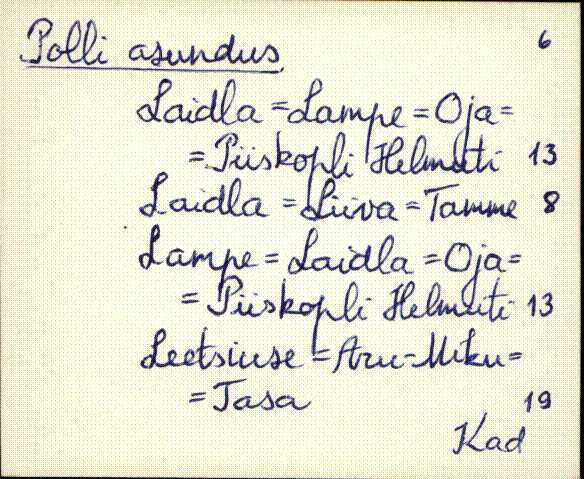 Polli asundus 6
Laidla = Lampe = Oja =
= Piiskopli Helmuti 13
Laidla = Liiva = Tamme 8
Lampe = Laidla = Oja =
= Piiskopli Helmuti 13
Leetsiuse = Aru-Miku =
= Tasa 19
Kad